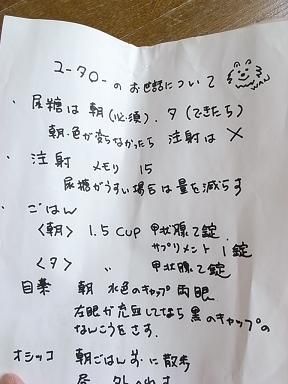 ユータローのお世話について
WAN
・尿糖は朝(必須). 夕(できたら)
朝、色が変らなかったら 注射は ×
・注射 メモリ 15
尿糖がうすい場合は量を減らす
・ごはん
〈朝〉 1.5 CUP 甲状腺て錠
サプリメント 1錠
〈夕〉 〃 甲状腺て錠
目薬 朝 水色のキャップ 両眼
左眼が充血してたら黒のキャップの
なんこうをさす。
オシッコ 朝ごはん前に散歩